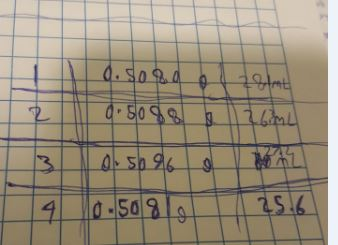 1 0.5080 g 28.1mL
2 0.5088 g 26.3mL
3 0.5096 g mL
4 0.5081 g 25.6